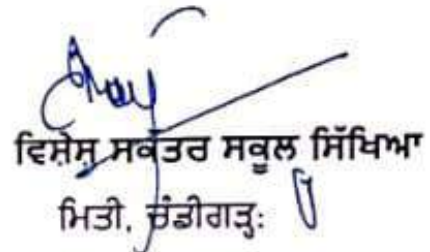 ਵਿਸ਼ੇਸ਼ ਸਕੱਤਰ ਸਕੂਲ ਸਿੱਖਿਆ
ਮਿਤੀ, ਚੰਡੀਗੜ੍ਹ: